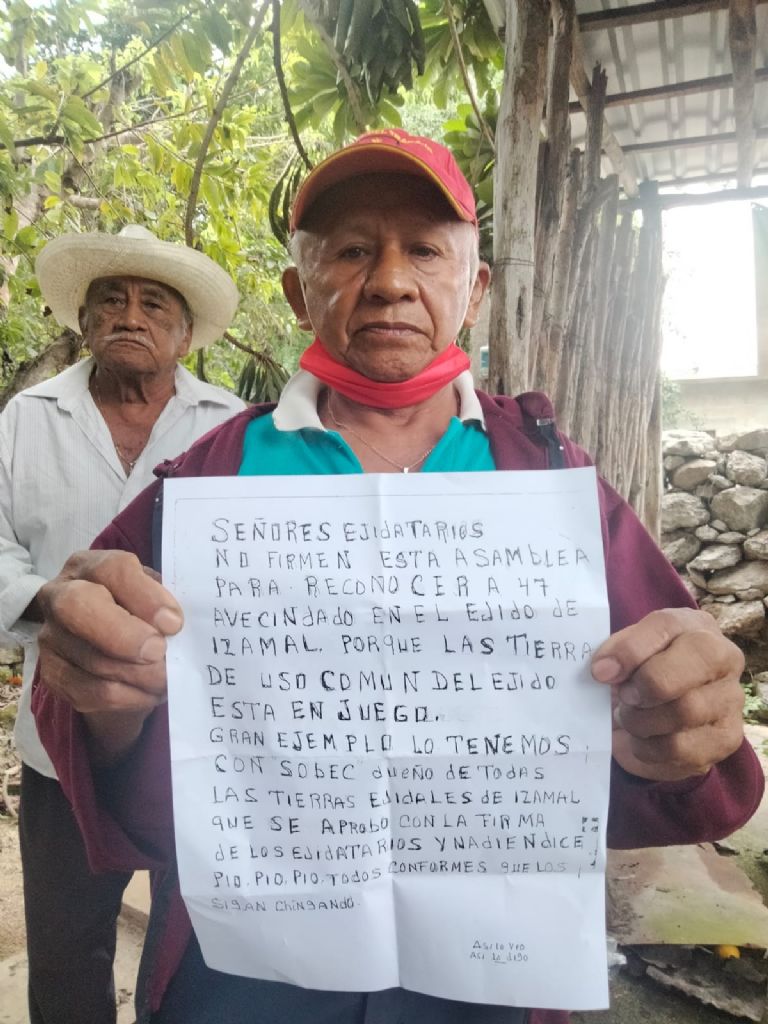 SEÑORES EJIDATARIOS
NO FIRMEN ESTA ASAMBLEA
PARA. RECONOCER A 47
AVECINDADO EN EL EJIDO DE
IZAMAL. PORQUE LAS TIERRA
DE USO COMUN DEL EJIDO
ESTA EN JUEGO.
GRAN EJEMPLO LO TENEMOS
CON "SOBEC" dUEÑO DE TODAS
LAS TIERRAS EJIDALES DE IZAMAL
QUE SE APROBO CON LA FIRMA
dE LOS EJIDATARIOS Y NADIEN DICE
PIO, PIO, PIO, TODOS CONFORMES QUE LOS
SIGAN CHINGANDO.
ASI LO VEO
ASI LO DIGO